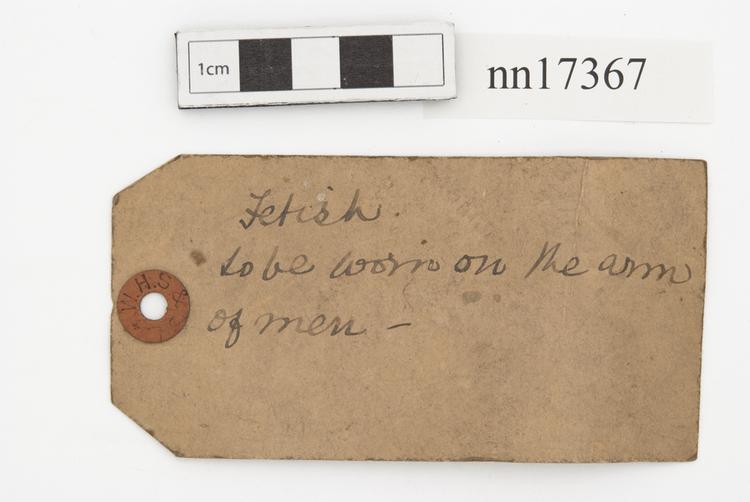 1cm
nn17367
Fetish.
to be worn on the arm
of men -
W.H.S &